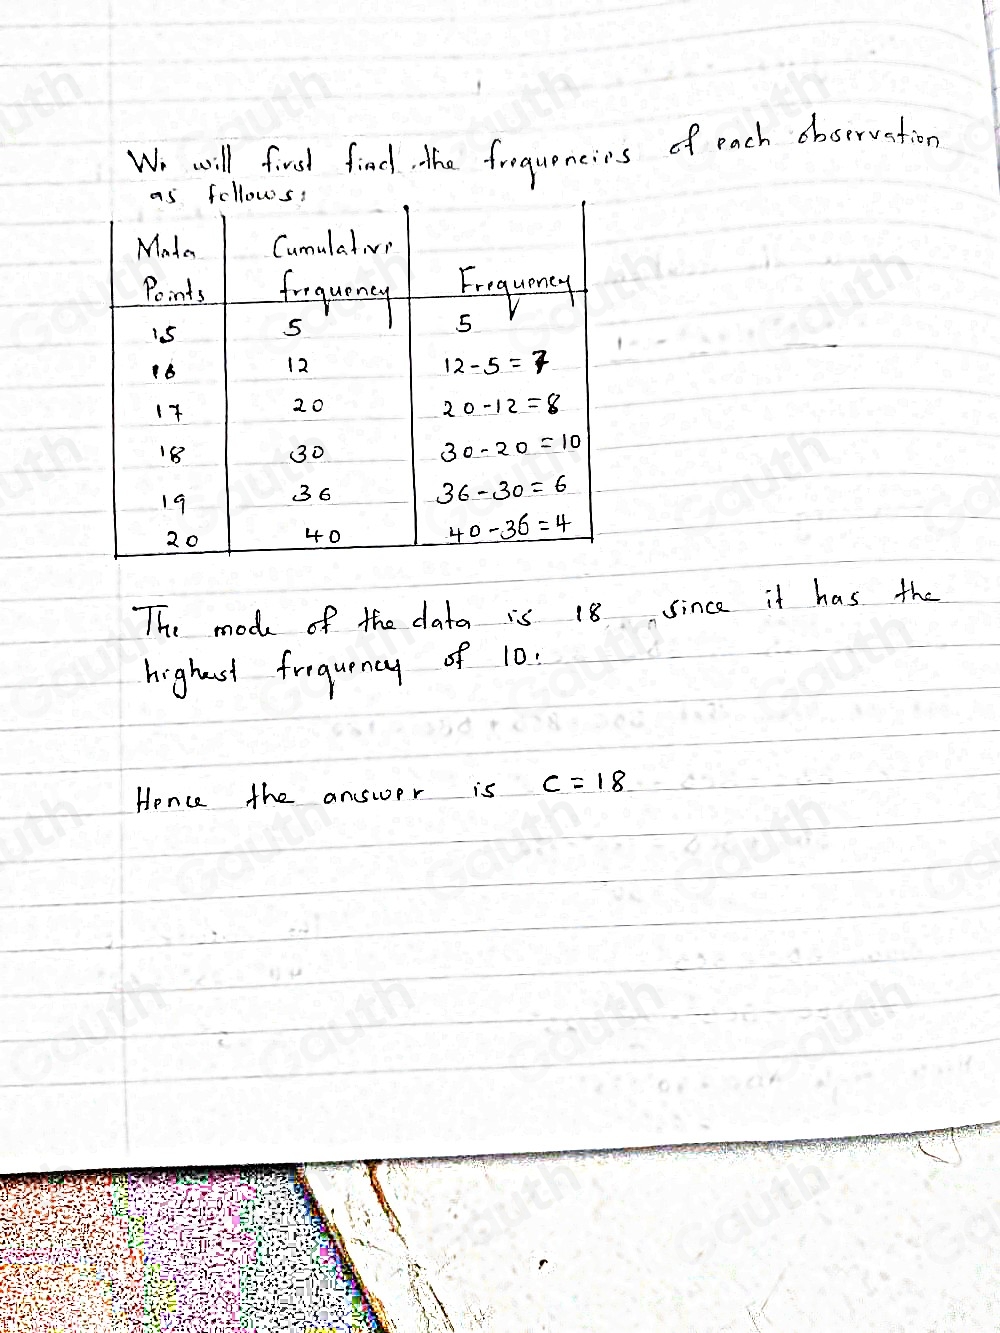 We will first find the frequencies of each observation
as follows:
Mata Cumulative
Points frequency Frequency
15 5 5
16 12 12-5=7
17 20 20-12=8
18 30 30-20=10
19 36 36-30=6
20 40 40-36=4
The mode of the data is 18 since it has the
highest frequency of 10.
Hence the answer is C=18